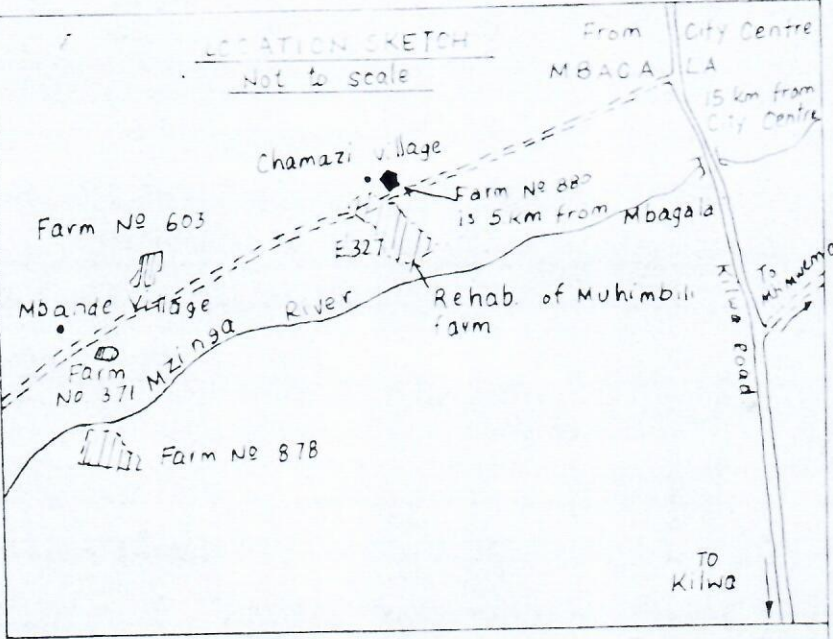 LOCATION SKETCH
Not to scale
From City Centre
MBAGALA
15 km from
City Centre
Chamazi village
Farm No 880
is 5km from Mbagala
Farm Nº 603
E327
Rehab. of Muhimbili
farm
Mbande Village
Mzinga River
Farm
No 371
Farm Nº 878
Kilwa Road
To
TO
Kilwa